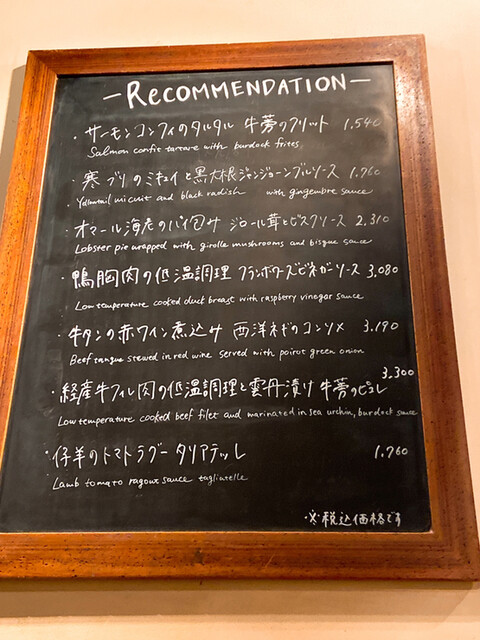 —RECOMMENDATION—
・サーモンコンフィのタルタル 牛蒡のフリット 1.540
Salmon confit tartare with burdock frites
・寒ブリのミキュイと黒大根ジャンジャーンブルソース 1.760
Yellowtail mi cuit and black radish with gingembre sauce
・オマール海老のパイ包み ジロール茸とビスクソース 2.310
Lobster pie wrapped with girolle mushrooms and bisque sauce
・鴨胸肉の低温調理 フランボワーズビネガーソース 3.080
Low temperature cooked duck breast with raspberry vinegar sauce
・牛タンの赤ワイン煮込み 西洋ネギのコンソメ 3.190
Beef tongue stewed in red wine served with poirot green onion
・経産牛フィレ肉の低温調理と雲丹漬け 牛蒡のピュレ 3.300
Low temperature cooked beef filet and marinated in sea urchin, burdock sauce
・仔羊のトマトラグー タリアテッレ 1.760
Lamb tomato ragout sauce tagliatelle
※税込価格です